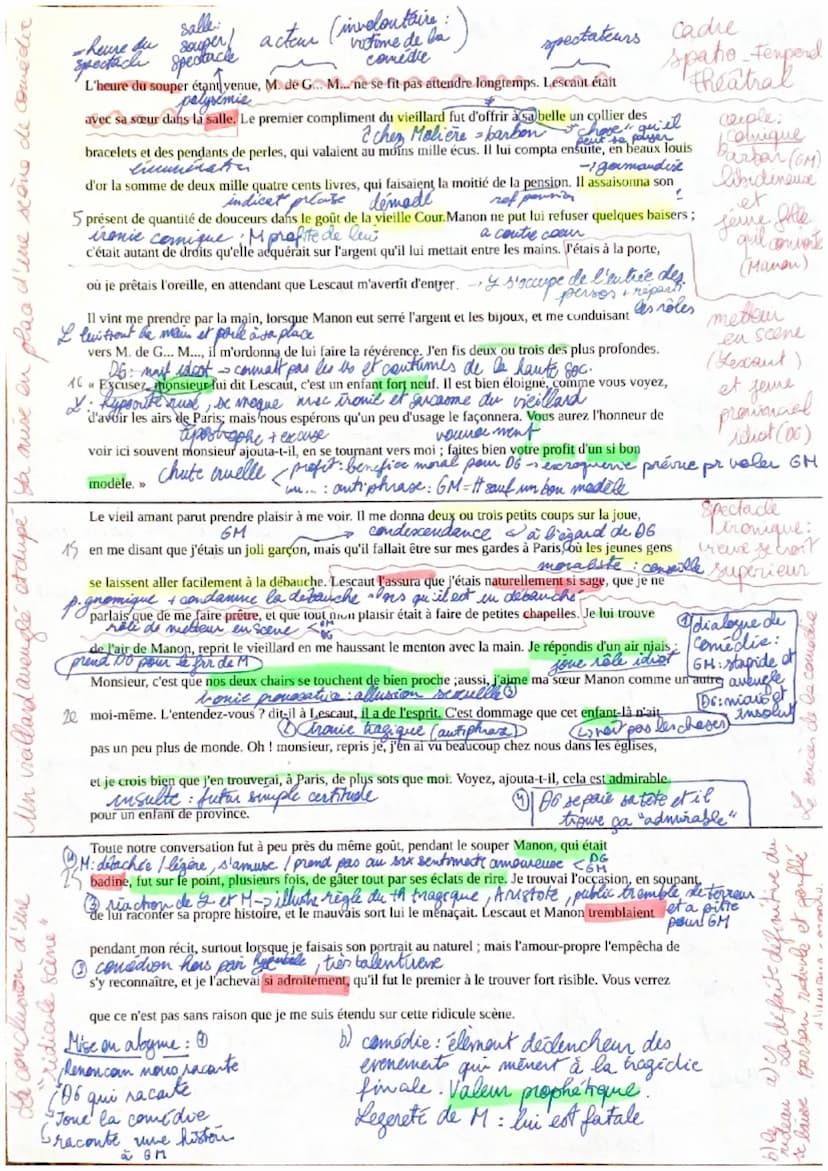 salle:
=heure du
spectacle
souper/
spectacle
acteur (involontaire :
victime de la
comédie)
spectateurs
cadre
spatio-temporel
théâtral
La mise en place d'une scène de comédie
L'heure du souper étant venue, M. de G... M... ne se fit pas attendre longtemps. Lescaut était
polysémie
avec sa sœur dans la salle. Le premier compliment du vieillard fut d'offrir à sa belle un collier des
chez Molière = barbon
"chose" qu'il
peut se payer
bracelets et des pendants de perles, qui valaient au moins mille écus. Il lui compta ensuite, en beaux louis
énumération
→ gourmandise
d'or la somme de deux mille quatre cents livres, qui faisaient la moitié de la pension. Il assaisonna son
indicat° précise
démodé
ref pension
5 présent de quantité de douceurs dans le goût de la vieille Cour. Manon ne put lui refuser quelques baisers ;
ironie comique : M profite de lui
a contre cœur
c'était autant de droits qu'elle acquérait sur l'argent qu'il lui mettait entre les mains. J'étais à la porte,
couple
comique
barbon (GM)
libidineux
et
jeune fille
qu'il convoite
(Manon)
où je prêtais l'oreille, en attendant que Lescaut m'avertît d'entrer. → L s'occupe de l'entrée des
persos + réparti
les rôles
Il vint me prendre par la main, lorsque Manon eut serré l'argent et les bijoux, et me conduisant
L lui tient la main et parle à sa place
vers M. de G... M..., il m'ordonna de lui faire la révérence. J'en fis deux ou trois des plus profondes.
DG: naïf idiot → connaît pas les us et coutumes de la haute soc.
metteur
en scène
(Lescaut)
et jeune
provincial
idiot (DG)
10 « Excusez, monsieur lui dit Lescaut, c'est un enfant fort neuf. Il est bien éloigné, comme vous voyez,
L: hypocrite rusé, se moque avec ironie et sarcasme du vieillard
d'avoir les airs de Paris; mais nous espérons qu'un peu d'usage le façonnera. Vous aurez l'honneur de
apostrophe + excuse
vouvoiement
voir ici souvent monsieur ajouta-t-il, en se tournant vers moi ; faites bien votre profit d'un si bon
chute cruelle
profit: bénéfice moral pour DG → escroquerie prévue pr voler GM
modèle. »
un... : antiphrase : GM = tt sauf un bon modèle
Un vieillard aveuglé et dupé
Le vieil amant parut prendre plaisir à me voir. Il me donna deux ou trois petits coups sur la joue,
GM
condescendance
à l'égard de DG
Spectacle
ironique:
vieux se croit
supérieur
15 en me disant que j'étais un joli garçon, mais qu'il fallait être sur mes gardes à Paris, où les jeunes gens
moraliste : conseille
se laissent aller facilement à la débauche. Lescaut l'assura que j'étais naturellement si sage, que je ne
p. gnomique + condamne la débauche alors qu'il est un débauché
parlais que de me faire prêtre, et que tout mon plaisir était à faire de petites chapelles. Je lui trouve
rôle de metteur en scène
de l'air de Manon, reprit le vieillard en me haussant le menton avec la main. Je répondis d'un air niais :
prend DG pour le frr de M
joue rôle idiot
Monsieur, c'est que nos deux chairs se touchent de bien proche ;aussi, j'aime ma sœur Manon comme un autre
ironie provocatrice : allusion sexuelle
1 dialogue de
comédie:
GM: stupide et
aveugle
DG: niais et
insolent
20 moi-même. L'entendez-vous ? dit-il à Lescaut, il a de l'esprit. C'est dommage que cet enfant-là n'ait
ironie tragique (antiphrase)
pas un peu plus de monde. Oh ! monsieur, repris je, j'en ai vu beaucoup chez nous dans les églises,
et je crois bien que j'en trouverai, à Paris, de plus sots que moi. Voyez, ajouta-t-il, cela est admirable
insulte : futur simple certitude
4 DG se paie sa tête et il
trouve ça "admirable"
pour un enfant de province.
Le succès de la comédie
La conclusion d'une
"ridicule scène"
Toute notre conversation fut à peu près du même goût, pendant le souper Manon, qui était
M: détachée/légère, s'amuse / prend pas au srx sentments amoureux < DG
GM
25 badine, fut sur le point, plusieurs fois, de gâter tout par ses éclats de rire. Je trouvai l'occasion, en soupant,
3 réaction de L et M → illustre règle du th tragique, Aristote, public tremble de terreur
et a pitié
pour GM
de lui raconter sa propre histoire, et le mauvais sort lui le menaçait. Lescaut et Manon tremblaient
pendant mon récit, surtout lorsque je faisais son portrait au naturel ; mais l'amour-propre l'empêcha de
comédien hors pair, très talentueux
hyperbole
s'y reconnaître, et je l'achevai si adroitement, qu'il fut le premier à le trouver fort risible. Vous verrez
que ce n'est pas sans raison que je me suis étendu sur cette ridicule scène.
Mise en abyme : 1
Renoncour nous raconte
DG qui raconte
Joue la comédie
raconte une histoire
à GM
b) comédie : élément déclencheur des
évènements qui mènent à la tragédie
finale. Valeur prophétique.
Légèreté de M : lui est fatale
a) La défaite définitive du
barbon ridicule et gonflé
b) le
rideau
se baisse